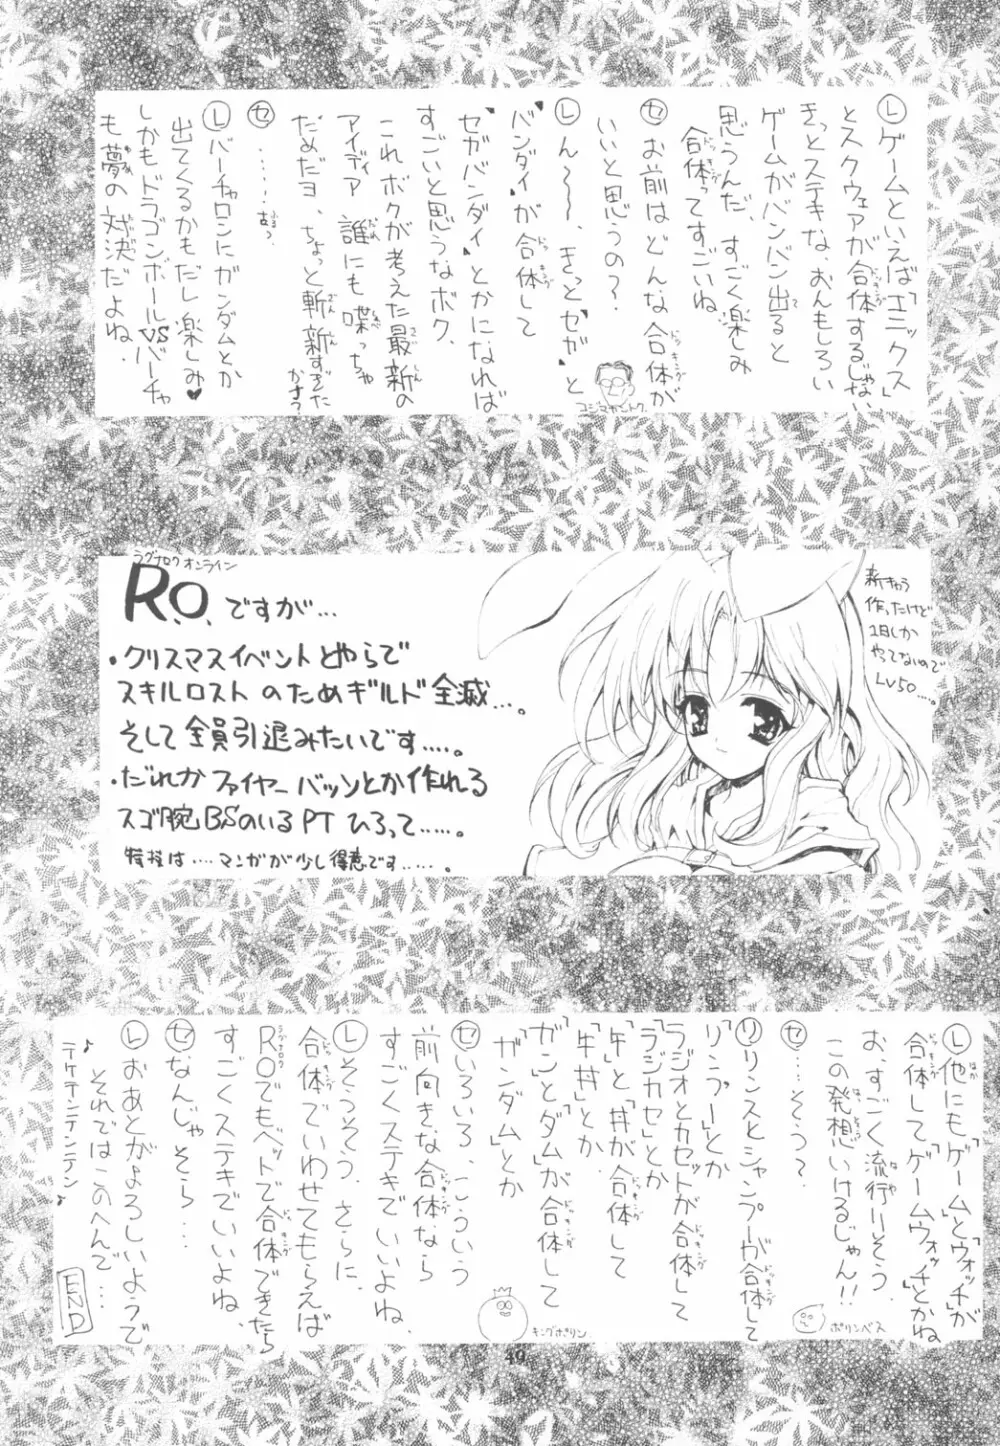 Ⓛゲームといえば「エニックス」
とスクウェアが合体するじゃない
きっとステキな、おんもしろい
ゲームがバンバン出ると
思うんだ、すごく楽しみ
合体ってすごいね
Ⓢお前はどんな合体が
いいと思うの?
Ⓛん〜〜、きっと"セガ"と
"バンダイ"が合体して
"セガバンダイ"とかになれば
すごいと思うなボク、
これボクが考えた最新の
アイディア 誰にも喋っちゃ
だめだヨ、ちょっと斬新すぎた
かナ?
㋝......あっ
Ⓛバーチャロンにガンダムとか
出てくるかもだし楽しみ♥
しかもドラゴンボールVSバーチャ
も夢の対決だよね.
コジマカントク
ラグナロクオンライン
R.O. ですが...
・クリスマスイベントとやらで
スキルロスト のためギルド全滅...。
そして全員引退みたいです.....。
・だれか ファイヤー バッソとか作れる
スゴ腕BSのいるPT ひろって.....。
特技は....マンガが少し得意です......。
新きゅう
作ったけど
1日しか
やってないので
LV50...。
Ⓛ他にも「ゲーム」と「ウォッチ」が
合体して「ゲームウォッチ」とかね
おっすごく流行りそう.
この発想いけるじゃん!!
㋝....そう?
㋷リンスとシャンプーが合体して
「リンプー」とか
ラジオとカセットが合体して
「ラジカセ」とか
「牛」と「丼」が合体して
「牛丼」とか.
「ガン」と「ダム」が合体して
「ガンダム」とか
㋝いろいろ、こういう
前向きな合体なら
すごくステキでいいよね.
Ⓛそうそう.さらに.
合体でいわせてもらえば
ROでもペットで合体できたら
すごくステキでいいよね.
㋝なんじゃ そら...
Ⓛおあとがよろしいようで
それではこのへんで...
♪テケテンテンテン♪
END
ポリンベス
キングポリン
49